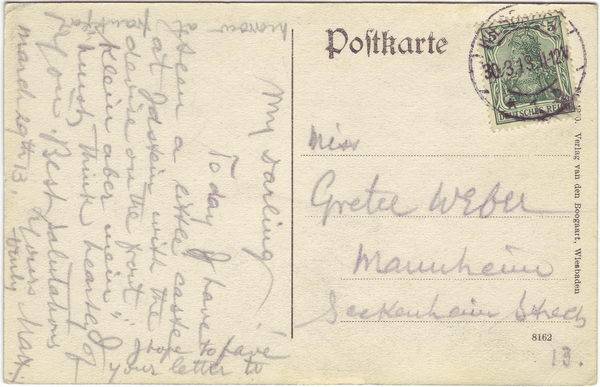 Postkarte
30.3.13. 11-12V
DEUTSCHES REICH
Miss
Gretel Weber
Mannheim
Seckenheim
13.
8162
Verlag van den Boogaart, Wiesbaden
My Darling
To day I have
seen a little castle
at Idstein with the
devise on the front
"Klein aber mein"
I must think hearted of
you. Best salutations
Yours
truly Max.
March 29th 13.
I hope to have
your letter to
morrow